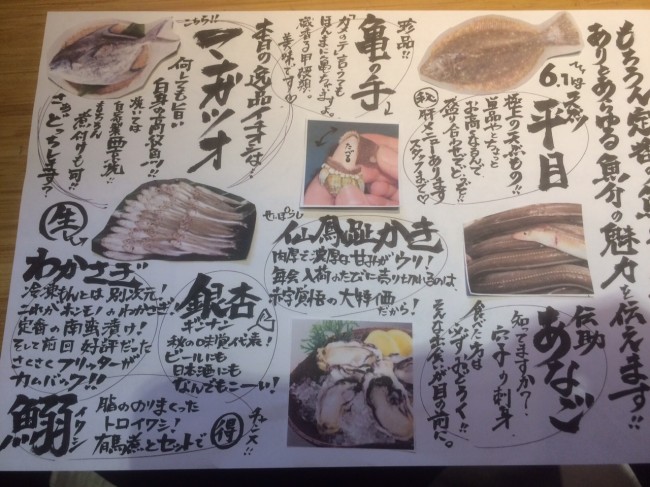 もちろん定番の魚
ありとあらゆる魚介の
魅力を伝えます!!
6.1
天然
平目
極上の天然もの!!
単品やとちょっと
お高いなんで
盛り合わせでどうぞ!!
秘
肝メニューあります
スタッフまで♡
珍品!!
亀の手
「カメのテ」言うても
ほんまに亀ちゃいますよ。
甲殻類。
美味です♡
本日の逸品イチオシは!
こちら!!
マナガツオ
何しても旨い
白身の高級魚!!
渋いては
煮付けも可!!
さぁどっちにします?
生
わかさぎ
冷凍もんとは別次元!
これがホンモノのわかさぎ
定番の南蛮漬け!
そして前回好評だった
さくさくフリッターが
カムバック!!
銀杏
ギンナン
秋の味覚代表!
ビールにも
日本酒にも
なんでもこーい!
せんぽうし
仙鳳趾かき
肉厚で濃厚な甘みがウリ!
毎会入荷のたびに売り切れるのは
赤字覚悟の大特価
だから!
伝助
あなご
知ってますか?
穴子の刺身
食べた方は
必ずむどろく!!
そんな出会が目の前に。
鰯
イワシ
脂ののりまくった
トロイワシ!
有馬煮とセットで
得
チャンス!!